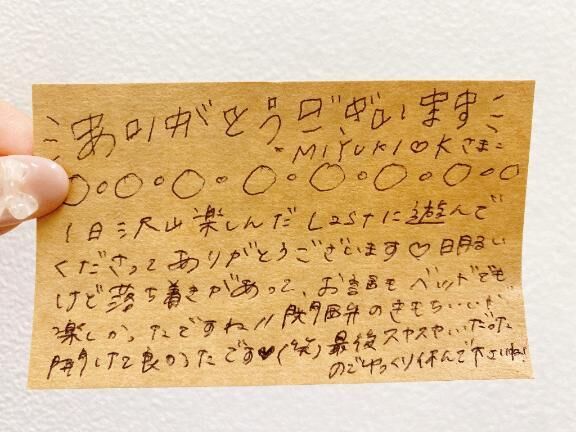 ありがとうございます
MIYUKI♡Kさま
1日沢山楽しんだLastに遊んで
くださってありがとうございます♡明るい
けど落ち着きがあって、お話もベッドでも
楽しかったですね!! 関西弁のきもちいいが
聞けて良かったです♥(笑) 最後スヤスヤいだった
のでゆっくり休んで下さいね!